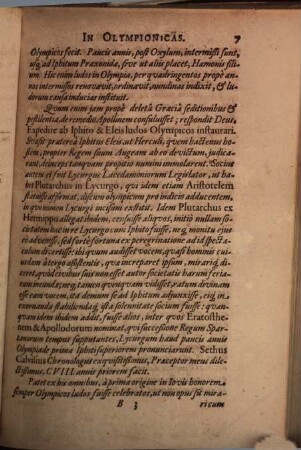 IN OLYMPIONICAS. 7
Olympicos fecit. Paucis annis, post Oxylum, intermissi sunt,
usq; ad Iphitum Praxonida, sive ut aliis placet, Hæmonis fili-
um. Hic enim ludos in Olympia, per quadringentos propè an-
nos intermissos renovavit, ordinavit, nundinas indixit, & lu-
dorum causa inducias instituit.
Quum enim jam propè deleta Græcia seditionibus &
pestilentia, de remedio Apollinem consuluisset; respondit Deus,
Expedire ab Iphito & Eleis ludos Olympicos instaurari.
Iussit præterea Iphitus Eleis ut Herculi, quem hactenus ho-
stem, propter Regem suum Augeam ab eo devictum, judica-
rant, deinceps tanquam propitio numini immolarent. Socius
autem ei fuit Lycurgus Lacedæmoniorum Legislator, ut ha-
bet Plutarchus in Lycurgo, qui idem etiam Aristotelem
statuisse affirmat, discum olympicum pro indicio adducentem,
in quo nomen Lycurgi incisum exstitit. Idem Plutarchus ex
Hermippo allegat ibidem, censuisse aliquos, initio nullam so-
cietatem hac in re Lycurgo cum Iphito fuisse, neq; monitu ejus
ei advenisse, sed fortè fortuna ex peregrinatione ad id specta-
culum divertisse: ibi quum audisset vocem, quasi hominis cu-
jusdam à tergo assistentis, qua increparet ipsum, mirariq; di-
ceret, quòd civibus suis non esset autor societatis harum feria-
rum ineundæ; neq; tamen quenquam vidisset, ratum divinam
esse eam vocem, ita demum se ad Iphitum adjunxisse, cui, in
exornanda & stabilienda istâ solennitate socium fuisse: quan-
quam idem ibidem addit, fuisse alios, inter quos Eratosthe-
nem & Apollodorum nominat, qui successione Regum Spar-
tanorum tempus supputantes, Lycurgum haud paucis annis
Olympiade prima Iphiti superiorem pronunciarunt. Sethus
Calvisius Chronologus exquisitissimus, Præceptor meus dile-
ctissimus, CVIII. annis priorem facit.
Patet ex his omnibus, à prima origine in Iovis honorem
semper Olympicos ludos fuisse celebratos, ut non opus sit mira-
B 3 ricum